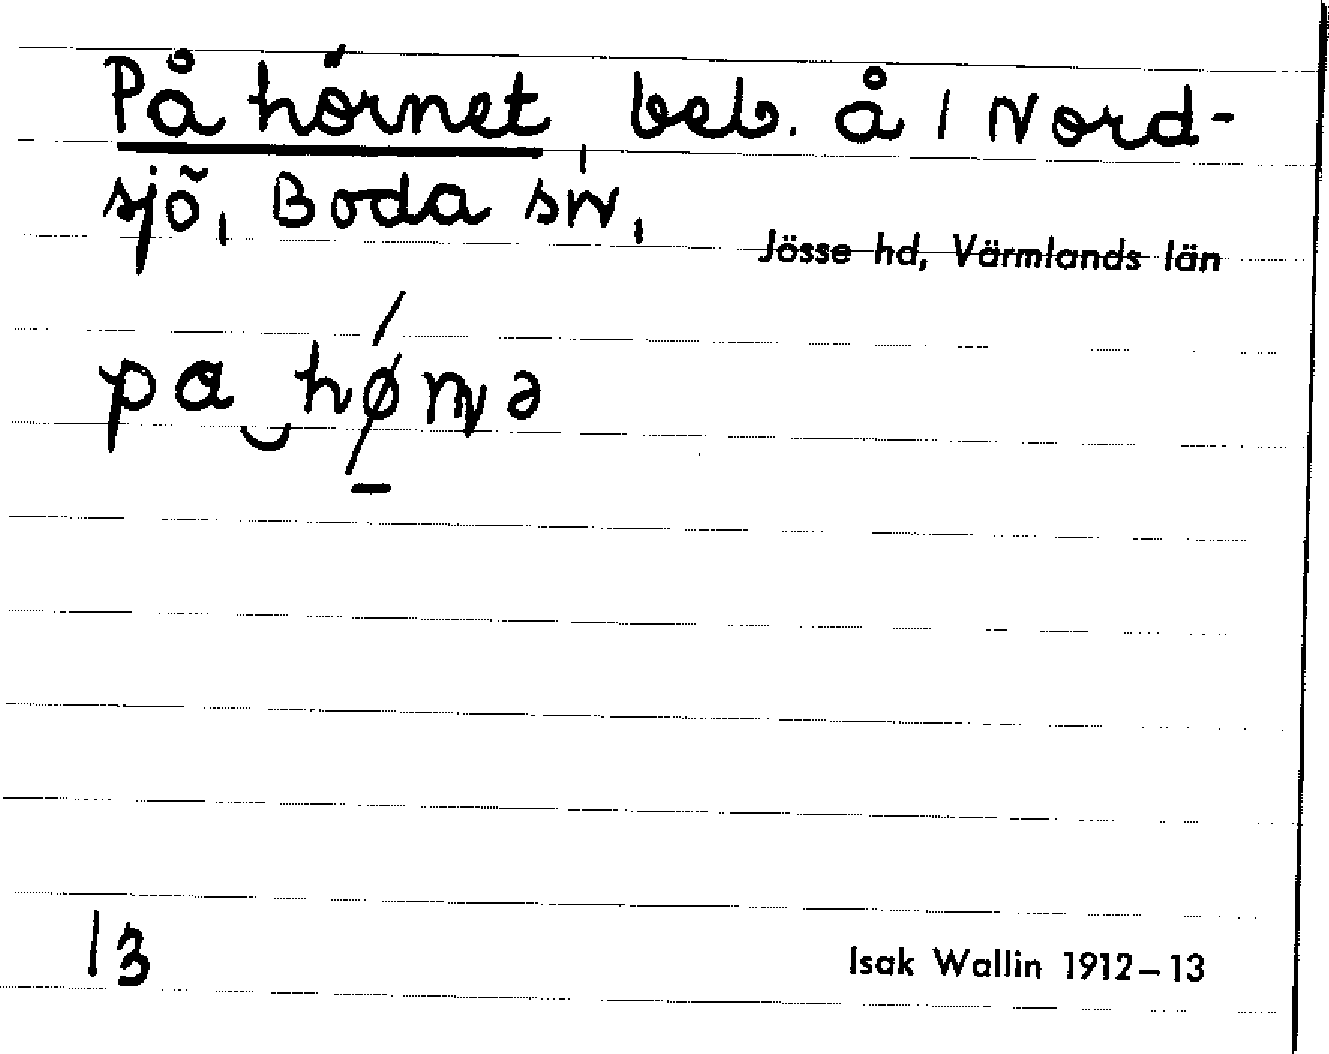 På hörnet, beb. å 1 Nord-
sjö, Boda sn,
Jösse hd, Värmlands län
pa‿hǿṇə
13
Isak Wallin 1912–13